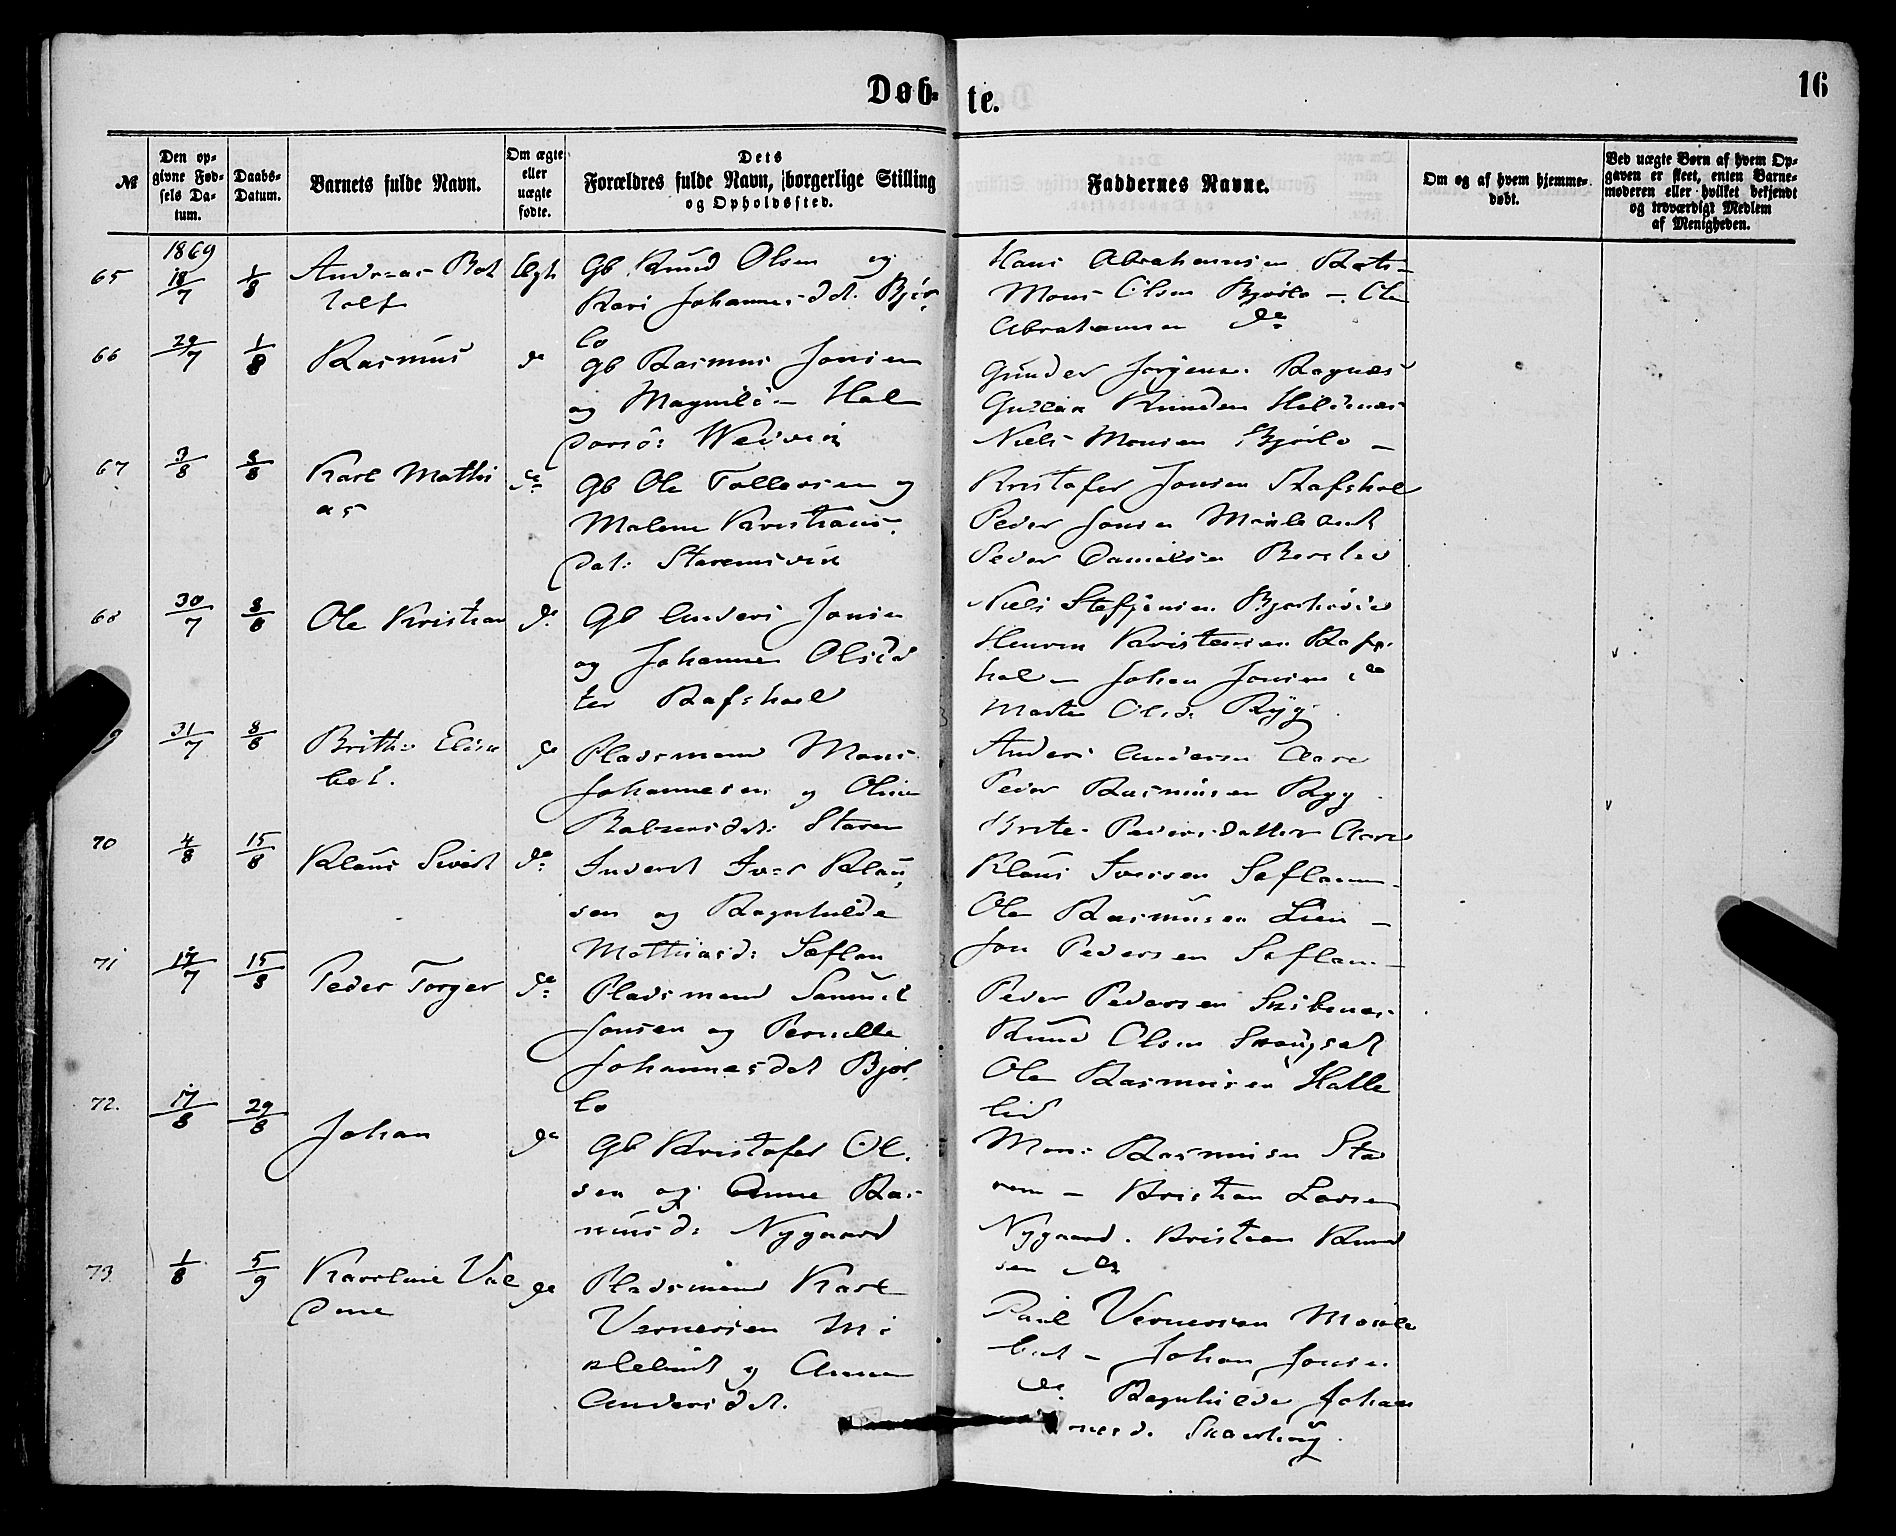 Døb-
te.
16
№
Den op-
givne Fød-
sels Da-
tum.
Daabs-
Datum.
Barnets fulde Navn.
Om ægte
eller
uægte
fødte.
Dets
Forældres fulde Navn, borgerlige Stilling
og Opholdssted.
Faddernes Navne.
Om og af hvem hjemme-
døbt.
Ved uægte Børn af hvem Op-
gaven er skeet, enten Barne-
moderen eller hvilket bekjendt
og troværdigt Medlem
af Menigheden.
1869
65
18/7
1/8
Andreas Bot
tolf
Ægte
Gb Knud Olsen og
Kari Johannesdat. Bjør
lo
Hans Abrahamsen
Mons Olsen Bjørlo - Ole
Abrahamsen do
66
29/7
1/8
Rasmus
do
Gb Rasmus Jonsen
og Magnild Hal
dorsd:
Gunder Jørgens. Ragnæs
Gullak Knudsen Hildenæs
Niels Monsen Bjørlo -
67
3/8
8/8
Karl Mathi
as
do
Gb Ole Tollevsen og
Malene Kristians
dat: Starensvik
Kristofer Jonsen Rafshol
Peder Jonsen
Peder Danielsen
68
30/7
8/8
Ole Kristian
do
Gb Anders Jonsen
og Johanne Olsdat
ter Rafshol
Niels
Kristensen Rafs
hol - Johan Jonsen do
Marte Olsd. Ryg
31/7
8/8
Brithe Elisa
bet.
do
Pladsmand Mons
Johannesen og Oline
Staren
Anders Andersen Aare
Peder Rasmusen Ryg
Brite Pedersdatter Aare
70
4/8
15/8
Klaus Sivert
do
Inderst Iver Klau
sen og Ragnhilde
Mathiasd: Sæflan
Klaus Iversen Seflann
Ole Rasmusen Lien -
Jon Pedersen Seflann -
71
17/7
15/8
Peder Torger
do
Pladsmand Samuel
Jonsen og Pernille
Johannesdat Bjør
lo
Peder Pedersen Skibenes
Knud Olsen
Ole Rasmusen Halle
lid
72.
17/8
29/8
Johan
do
Gb Kristofer Ol
sen og Anne Ras
musd: Nygaard
Mons Rasmusen Sta
ren - Kristian Larsen
Nygaard. Kristian Knud
sen do
73
1/8
5/9
Karoline Val
dine
do
Pladsmand Karl
Vernersen Mi
klebust og Anne
Andersdat.
Paul Vernersen
bust - Johan Jonsen
do Ragnhilde Johan
nesd.